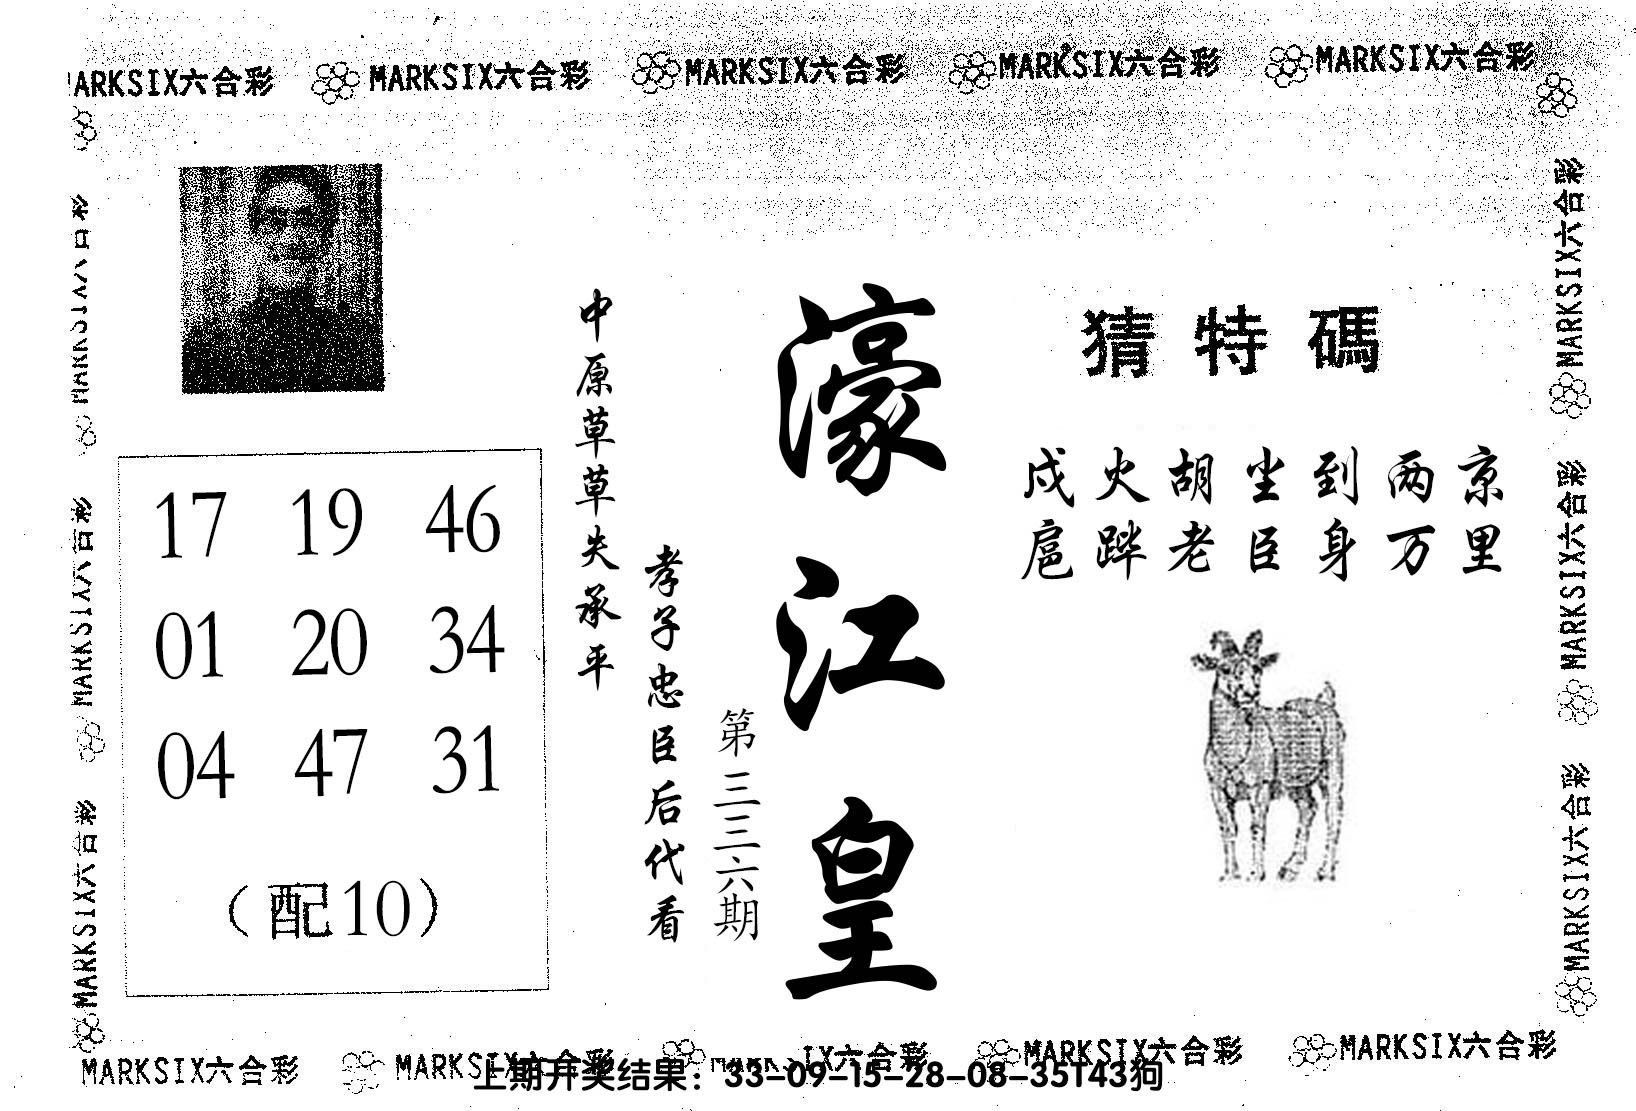 MARKSIX六合彩 MARKSIX六合彩 MARKSIX六合彩 MARKSIX六合彩 MARKSIX六合彩
濠江皇
第三三六期
中原草草失承平
孝子忠臣后代看
猜特碼
戍火胡尘到两京
扈跸老臣身万里
17 19 46
01 20 34
04 47 31
(配10)
MARKSIX六合彩
MARKSIX六合彩
MARKSIX六合彩
MARKSIX六合彩
MARKSIX六合彩
MARKSIX六合彩
MARKSIX六合彩 MARKSIX六合彩 MARKSIX六合彩 MARKSIX六合彩 MARKSIX六合彩
上期开奖结果：33-09-15-28-08-35T43狗